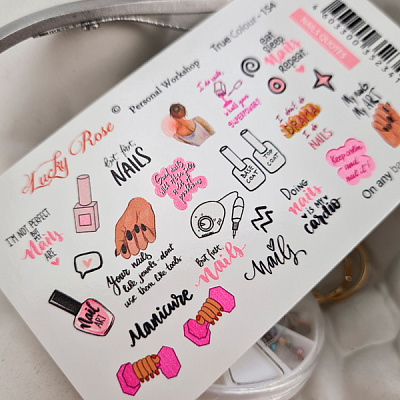 Lucky Rose
©
Personal Workshop
True Colour - 154
NAILS QUOTES
eat
sleep
Nails
REPEAT
But first,
NAILS
I do nails
what's your
SUPERPOWER?
I don't do
DRAMA
I do
NAILS
My nails
My ART
Keep calm
and
nail it!
BASE
COAT
TOP
COAT
I'M NOT PERFECT
but my
Nails
ARE
Doing
nails
IS MY
cardio
On any ba
Your nails
are jewels - dont
use them like tools
But first
Nails
Nails
Nail
ART
Manicure